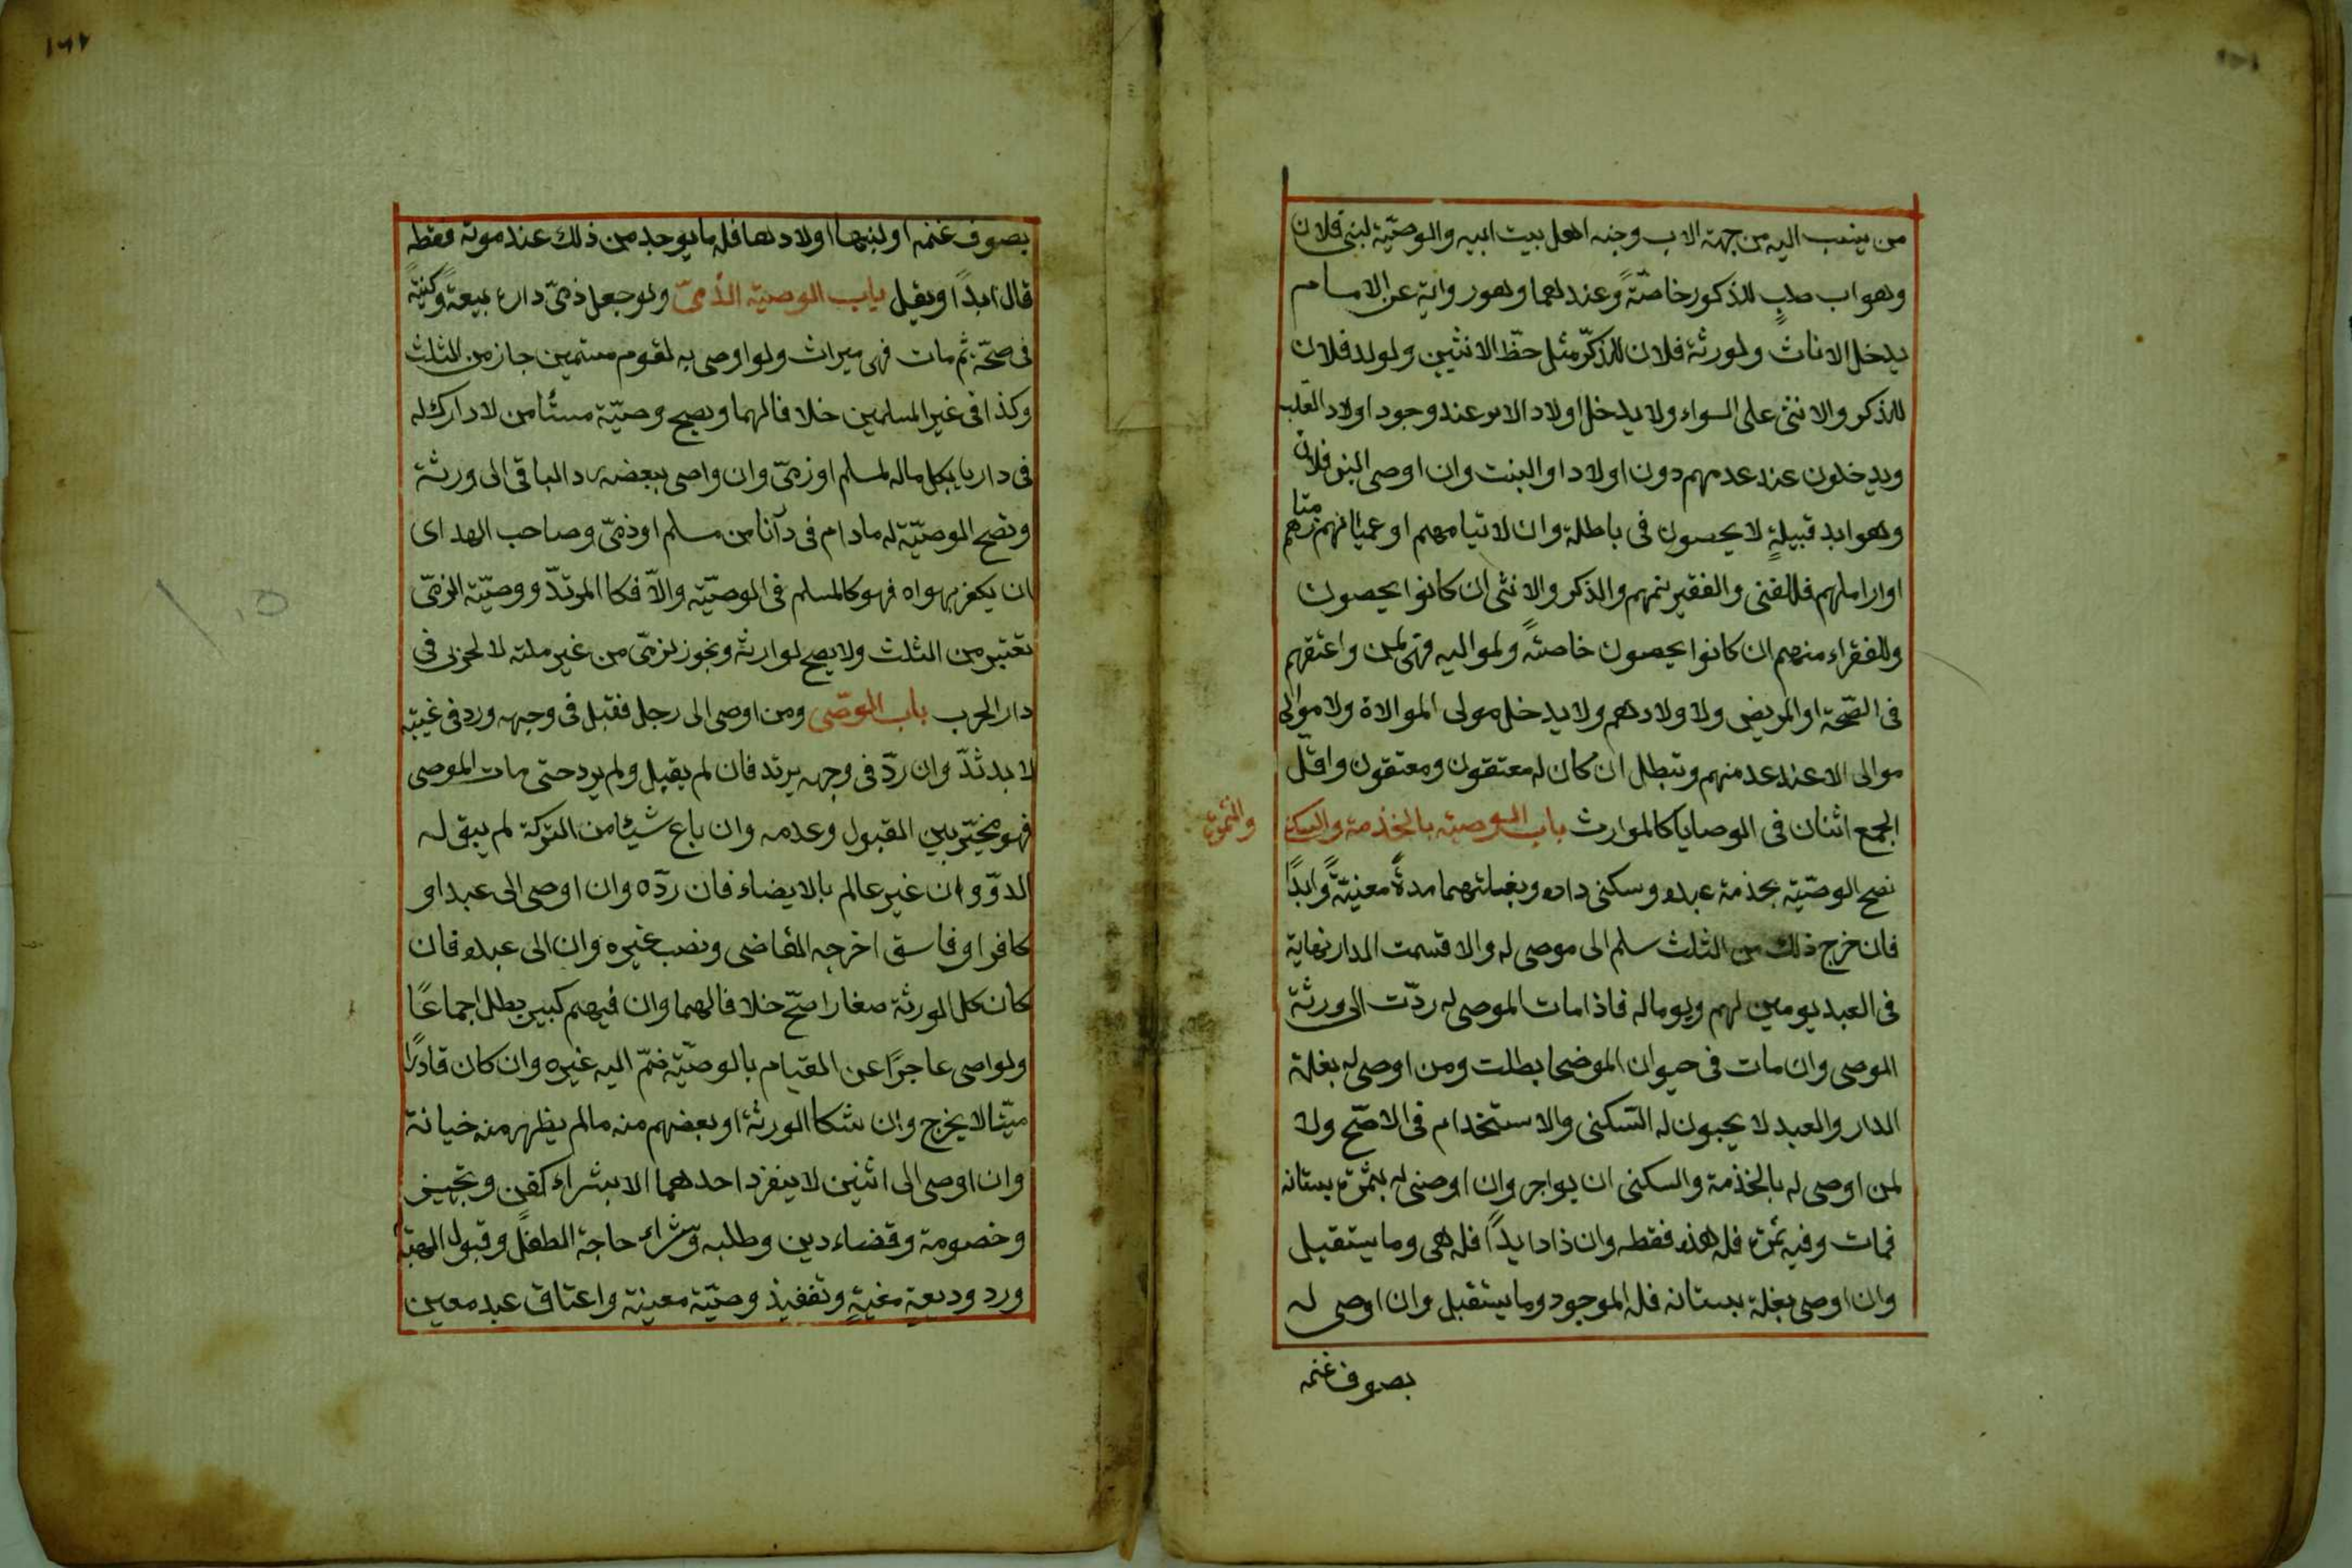 من ينسب اليه من جهة الاب وجنه اهل بيت ابيه والوصيّة لبنى فلان
وهو اب صلبٍ للذكور خاصّةً وعندهما وهو رواية عن الامام
يدخل الاناث ولورثة فلان للذكرّ مثل حظّ الانثيين ولولد فلان
للذكر والانثى على السواء ولا يدخل اولاد الابن عند وجود اولاد الصّلب
ويدخلون عند عدمهم دون اولاد او البنت وان اوصى البنو فلان
وهو ابد قبيلةٍ لا يحصون فى باطلة وان لا تيامهم او عميانهم
او اراملهم فللغنى والفقير نمهم والذكر والانثى ان كانوا يحصون
وللفقراء منهم ان كانوا يحصون خاصّةً ولمواليه فهى لمن واعتقهم
فى الصّحة او المريض ولا ولادهم ولا يدخل مولى الموالاة ولا موالى
موالى الا عند عدمنهم وتبطل ان كان له معتقون ومعتقون واقلّ
الجمع اثنان فى الوصايا كالموارث باب الوصية بالخذمة والسكنى
والثمرة
تصح الوصيّة بخذمة عبده وسكنى داره وبغلتهما مدةً معنيّةً وابدًا
فان خرج ذلك من الثلث سلم الى موصى له والا قسمت الدار نهاية
فى العبد يومين لهم ويوما له فاذا مات الموصى له ردّت الى ورثة
الموصى وان مات فى حيوان الموضحا بطلت ومن اوصى له بغلة
الدار والعبد لا يجبون له السّكنى والاستخدام فى الاصّح ولا
لمن اوصى له بالخذمة والسكنى ان يواجر وان اوصنى له بثمرة بستانه
فمات وفيه ثمرة فله هذه فقط وان ذاد ايدًا فله هى وما يستقبل
وان اوصى بغلة بستانه فله الموجود وما يستقبل وان اوصى له
بصوف غنمه
بصوف غنمه او لبنها او اولادها فله ما يوجد من ذلك عند موته فقط
قال ابدًا ويقيل باب الوصية الذّمىّ ولو جعل ذمىّ داره بيعةً وكنيةً
فى صحّة ثم مات فهى ميراث ولو اوصى به لقوم مستمين جاز من الثلث
وكذا فى غير المسلمين خلافا لهما ويصح وصيّة مستأمن لا دارك له
فى دارنا بكل ماله لمسلم او زمىّ وان واصى ببعضه رد الباقى الى ورثة
وتصح الوصيّة له مادام فى دآنا من مسلم او ذمىّ وصاحب الهداى
ان يكفر بهواه فهو كالمسلم فى الوصيّة والاّ فكا المرتدّ ووصيّة الزمّى
تعتبر من الثلث ولا يصح لوارثه وتجوز لزمّى من غير ملته لا لحربى فى
دار الحرب باب الوصّى ومن اوصى الى رجل فقبل فى وجهه ورد فى غيبته
لا بدثدّ وان ردّ فى وجهه يرتد فان لم يقبل ولم يرد حتى مات الموصى
فهو مخيّر بين القبول وعدمه وان باع شيئا من التركة لم يبق له
الدوّ وان غير عالم بالايضاء فان ردّه وان اوصى الى عبد او
كافر او فاسق اخرجه القاضى ونصب غيره وان الى عبده فان
كان كل الورثة صغارا صحّ خلافا لهما وان فيهم كبير بطل اجماعًا
ولو اصى عاجزًا عن القيام بالوصيّة ضمّ اليه غيره وان كان قادرًا
ميّتا لا يخرج وان شكا الورثة او بعضهم منه مالم يظهر منه خيانة
وان اوصى الى اثنين لا ينفرد احدهما الا بشراء كفن وتجهيز
وخصومة وقضاء دين وطلبه وشراء حاجة الطفل وقبول الهبة
ورد وديعة مغيةٍ وتنفيذ وصيّة معينة واعتاق عبد معين